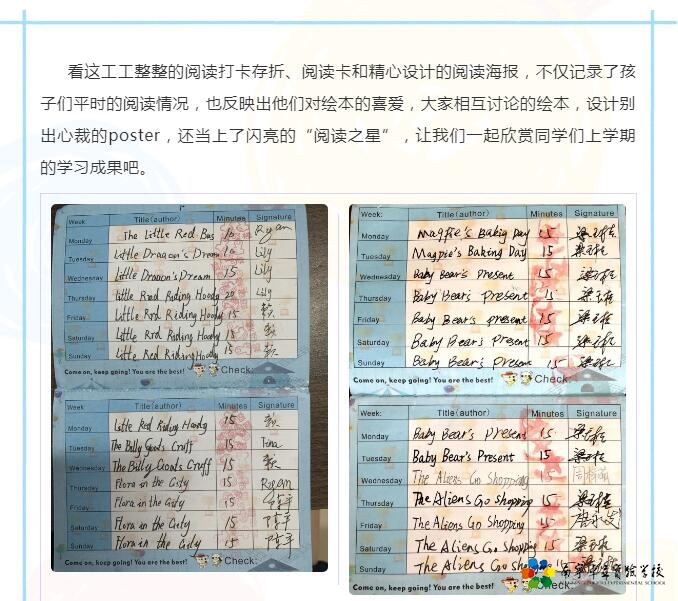 看这工工整整的阅读打卡存折、阅读卡和精心设计的阅读海报，不仅记录了孩
子们平时的阅读情况，也反映出他们对绘本的喜爱，大家相互讨论的绘本，设计别
出心裁的poster，还当上了闪亮的“阅读之星”，让我们一起欣赏同学们上学期
的学习成果吧。
Week: Title(author) Minutes Signature
Monday The Little Red Bas 10 Ryan
Tuesday Little Dragon's Dream 10 Lily
Wednesday Little Dragon's Dream 15 Lily
Thursday Little Rrd Riding Hoody 20 Lily
Friday Little Rrd Riding Hoody 15
Saturday Little Rrd Riding Hoody 15
Sunday Little Red Riding Hoody 15
Come on, keep going! You are the best! Check:
Week: Title(author) Minutes Signature
Monday Little Red Riding Hoody 15
Tuesday The Billy Goats Gruff 15 Tina
Wednesday The Billy Goats Gruff 15
Thursday Flora in the City 15
Friday Flora in the City 15
Saturday Flora in the City 15
Sunday Flora in the City 15
Come on, keep going! You are the best! Check:
Week: Title(author) Minutes Signature
Monday Magpie's Baking Day 15
Tuesday Magpie's Baking Day 15
Wednesday Baby Bear's Present 15
Thursday Baby Bear's Present 15
Friday Baby Bear's Present 15
Saturday Baby Bear's Present 15
Sunday Baby Bear's Present 15
Come on, keep going! You are the best! Check:
Week: Title(author) Minutes Signature
Monday Baby Bear's Present 15
Tuesday Baby Bear's Present 15
Wednesday The Aliens Go Shopping 15
Thursday The Aliens Go Shopping 15
Friday The Aliens Go Shopping 15
Saturday The Aliens Go Shopping 15
Sunday The Aliens Go Shopping
Come on, keep going! You are the best!